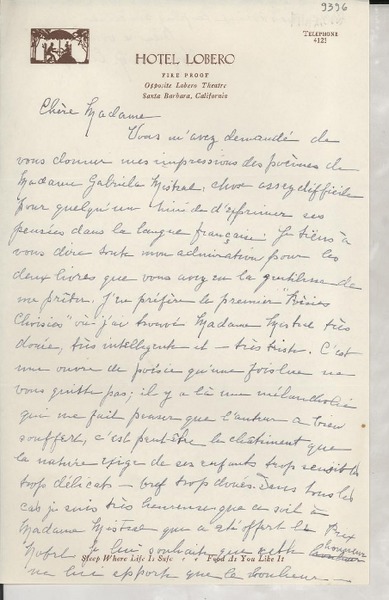 9396
TELEPHONE
4121
HOTEL LOBERO
FIRE PROOF
Opposite Lobero Theatre
Santa Barbara, California
Chère Madame
Vous m'avez demandé de
vous donner mes impressions des poèmes de
Madame Gabriela Mistral, chose assez difficile
pour quelqu'un timide d'exprimer ses
pensées dans la langue française. Je tiens à
vous dire toute mon admiration pour les
deux livres que vous avez eu la gentillesse de
me prêter. J'ai préféré le premier "Poésies
Choisies" où j'ai trouvé Madame Mistral très
douée, très intelligente et — très triste. C'est
une œuvre de poésie qu'une fois lue ne
vous quitte pas; il y a là une mélancholie
qui me fait penser que l'auteur a bien
souffert, c'est peut-être le châtiment que
la nature exige de ses enfants trop sensibles
trop délicats — bref trop doués. Dans tous les
cas je suis très heureuse que ce soit à
Madame Mistral que a été offert le Prix
Nobel. Je lui souhaite que cette honneur
ne lui apporte que le bonheur —
Sleep Where Life Is Safe Food As You Like It